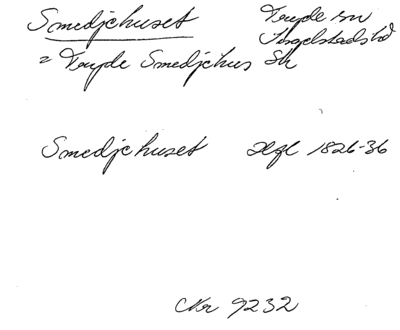 Smedjehuset Tryde sn
Ingelstads hd
= Tryde Smedjehus Sk
Smedjehuset Hfl 1826-36
Nr 9232